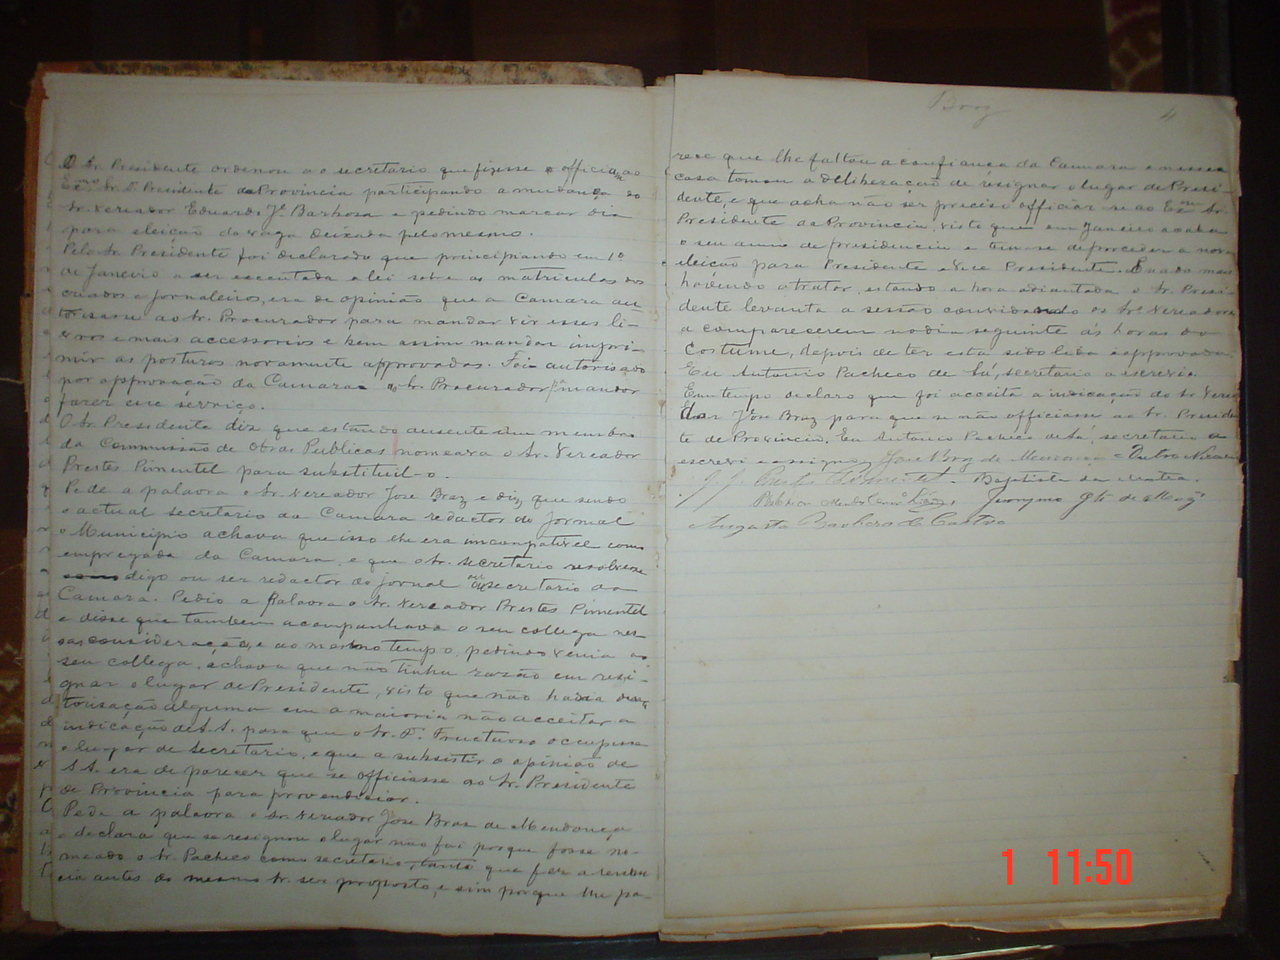 O Sr. Presidente ordenou ao secretario que fizesse officio ao
Exmo. Sr. Dr. Presidente da Provincia participando a mudança do
Sr. Vereador Eduardo Je. Barbosa e pedindo marcar dia
para eleição da vaga deixada pelo mesmo.
Pelo Sr. Presidente foi declarado que principiando em 1º
de Janeiro a ser executada a lei sobre as matriculas dos
criados e jornaleiros, era de opinião que a Camara au
torisasse ao Sr. Procurador para mandar vir esses li-
vros e mais accessorios e bem assim mandar impri-
mir as posturas novamente approvadas. Foi autorisado
por approvação da Camara o Sr. Procurador pa. mandar
fazer esse serviço.
O Sr. Presidente diz que estando ausente um membro
da Commissão de Obras Publicas nomeava o Sr. Vereador
Prestes Pimentel para substituil-o.
Pede a palavra o Sr. Vereador José Braz e diz que sendo
o actual secretario da Camara redactor do Jornal
o Municipio achava que isso lhe era incompativel como
empregado da Camara, e que o Sr. secretario resolvesse
digo ou ser redactor do jornal ou secretario da
Camara. Pedio a palavra o Sr. Vereador Prestes Pimentel
e disse que tambem acompanhava o seu collega nes
sa consideração, e ao mesmo tempo, pedindo venia ao
seu collega, achava que não tinha rasão em resi-
gnar o lugar de Presidente, visto que não havia desau
torisação alguma em a maioria não acceitar a
indicação de S.S. para que o Sr. Fructuoso occupasse
o lugar de secretario, e que a subsistir a opinião de
S.S. era de parecer que se officiasse ao Sr. Presidente
de Provincia para providenciar.
Pede a palavra o Sr. Vereador José Braz de Mendonça
e declara que se resignou o lugar não foi porque fosse no-
meado o Sr. Pacheco como secretario, tanto que fez a
antes do mesmo Sr. ser proposto, e sim porque lhe pa-
Braz
4
rece que lhe faltou a confiança da Camara e nesse
caso tomou a deliberação de resignar o lugar de Presi-
dente, e que acha não ser preciso officiar-se ao Exmo. Sr.
Presidente da Provincia, visto que em Janeiro acaba
o seu anno de presidencia e tem-se de proceder a nova
eleição para Presidente e Vice Presidente. E nada mais
havendo a tratar, estando a hora adiantada o Sr. Presi-
dente levanta a sessão convidando os Srs. Vereadores
a comparecerem no dia seguinte ás horas do
costume, depois de ter esta sido lida e approvada.
Eu Antonio Pacheco de Sá, secretario a escrevi.
Em tempo declaro que foi acceita a indicação do Sr. Verea
dor José Braz para que se não officiasse ao Sr. Presiden
te de Provincia, Eu Antonio Pacheco de Sá, secretario a
escrevi e assigno. José Braz de Mendonça
Prestes Pimentel. Baptista da Motta.
Jeronymo
Augusto Barboza de Castro
1 11:50